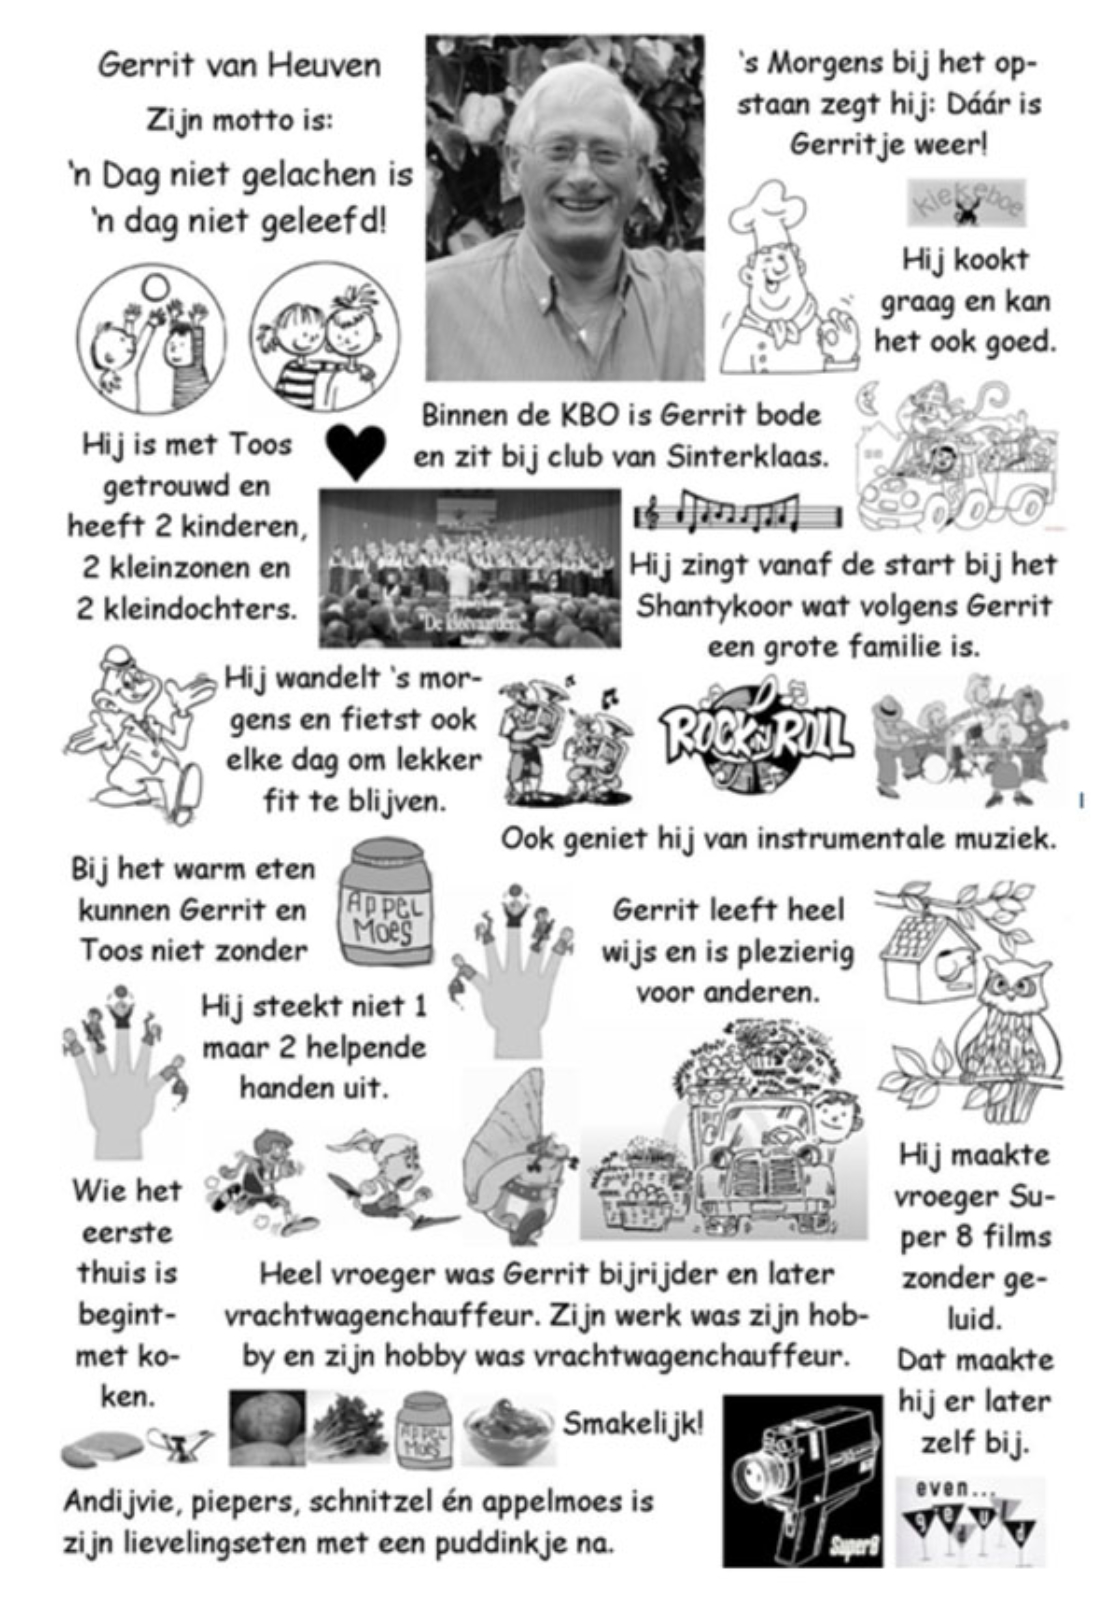 Gerrit van Heuven
Zijn motto is:
'n Dag niet gelachen is
'n dag niet geleefd!
's Morgens bij het op-
staan zegt hij: Dáár is
Gerritje weer!
kiekeboe
Hij kookt
graag en kan
het ook goed.
Hij is met Toos
getrouwd en
heeft 2 kinderen,
2 kleinzonen en
2 kleindochters.
Binnen de KBO is Gerrit bode
en zit bij club van Sinterklaas.
Hij zingt vanaf de start bij het
Shantykoor wat volgens Gerrit
een grote familie is.
Hij wandelt 's mor-
gens en fietst ook
elke dag om lekker
fit te blijven.
ROCK N ROLL
Ook geniet hij van instrumentale muziek.
Bij het warm eten
kunnen Gerrit en
Toos niet zonder
APPEL
MOES
Gerrit leeft heel
wijs en is plezierig
voor anderen.
Hij steekt niet 1
maar 2 helpende
handen uit.
Wie het
eerste
thuis is
begint-
met ko-
ken.
Heel vroeger was Gerrit bijrijder en later
vrachtwagenchauffeur. Zijn werk was zijn hob-
by en zijn hobby was vrachtwagenchauffeur.
Hij maakte
vroeger Su-
per 8 films
zonder ge-
luid.
Dat maakte
hij er later
zelf bij.
APPEL
MOES
Smakelijk!
Andijvie, piepers, schnitzel én appelmoes is
zijn lievelingseten met een puddinkje na.
Super8
even...